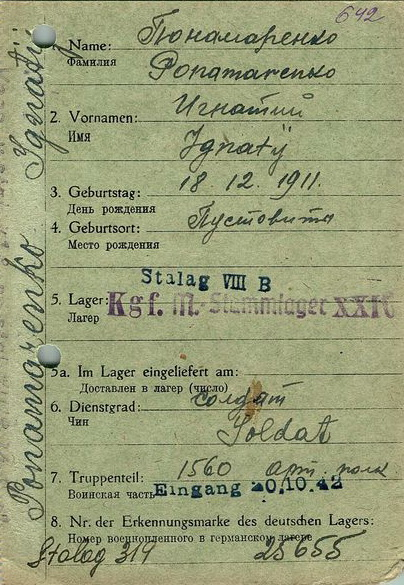 642
Name: Понамаренко
Фамилия Ponamarenko
2. Vornamen: Игнатий
Имя Jgnatÿ
3. Geburtstag: 18. 12. 1911.
День рождения
4. Geburtsort: Пустовита
Место рождения
Stalag VIII B
5. Lager: Kgf. M.-Stammlager
Лагер
5a. Im Lager eingeliefert am:
Доставлен в лагер (число)
6. Dienstgrad: солдат
Чин Soldat
7. Truppenteil: 1560 арт. полк
Воинская часть Eingang 20.10.42
8. Nr. der Erkennungsmarke des deutschen Lagers:
Номер военнопленного в германском лагере
Stalag 319 25655
Ponamarenko Jgnatÿ